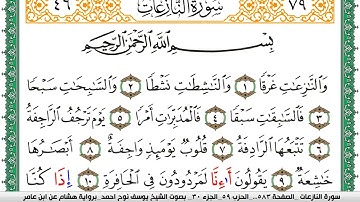 ٤٦ سُورَةُ النَّازِعَاتِ ٧٩
بِسْمِ اللَّهِ الرَّحْمَٰنِ الرَّحِيمِ
وَالنَّٰزِعَٰتِ غَرْقًا ١ وَالنَّٰشِطَٰتِ نَشْطًا ٢ وَالسَّٰبِحَٰتِ سَبْحًا
٣ فَالسَّٰبِقَٰتِ سَبْقًا ٤ فَالْمُدَبِّرَٰتِ أَمْرًا ٥ يَوْمَ تَرْجُفُ الرَّاجِفَةُ
٦ تَتْبَعُهَا الرَّادِفَةُ ٧ قُلُوبٌ يَوْمَئِذٍ وَاجِفَةٌ ٨ أَبْصَٰرُهَا
خَٰشِعَةٌ ٩ يَقُولُونَ أَا۟ءِنَّا لَمَرْدُودُونَ فِي الْحَافِرَةِ ١٠ إِذَا كُنَّا
سورة النازعات الصفحة ٥٨٣... الحزب ٥٩. الجزء ٣٠. بصوت الشيخ يوسف نوح احمد برواية هشام عن ابن عامر